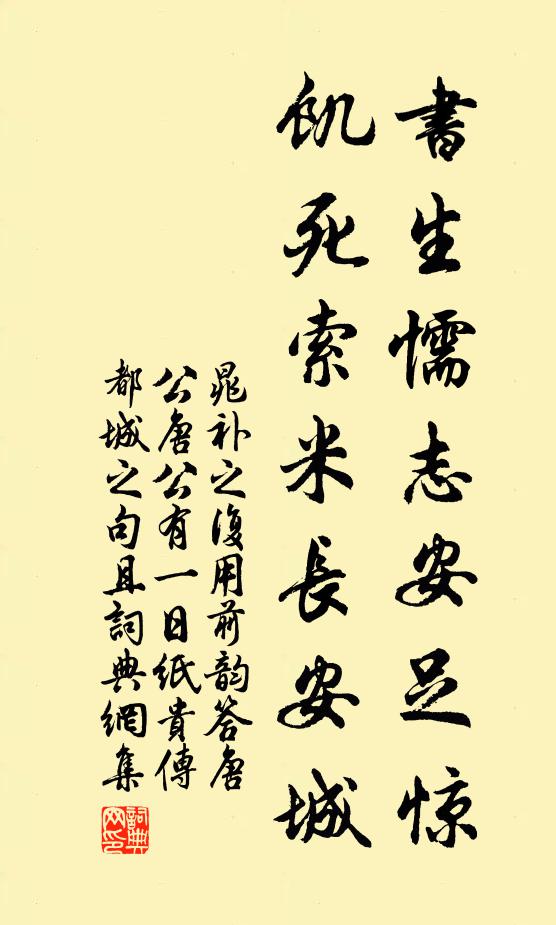 書生懦志安足惊
飢死索米長安城
晁补之復用前韵答唐
公唐公有一日紙貴傳
都城之句且詞典網集
詞典网印